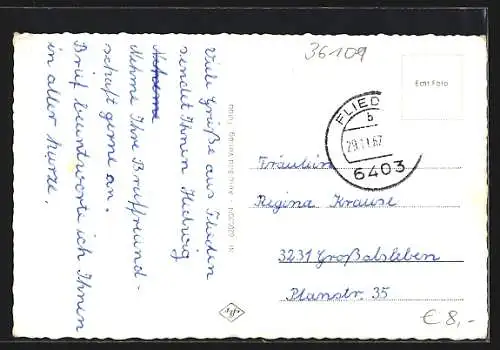 36109
Echt Foto
FLIED
b
29.11.67
6403
Viele Grüße aus Flieden
sendet Ihnen Hedwig
Nehme Ihre Brieffreund-
schaft gerne an.
Brief beantworte ich Ihnen
in aller Kürze.
Fräulein
Regina Krause
3231 Großalsleben
Planstr. 35
€ 8,-